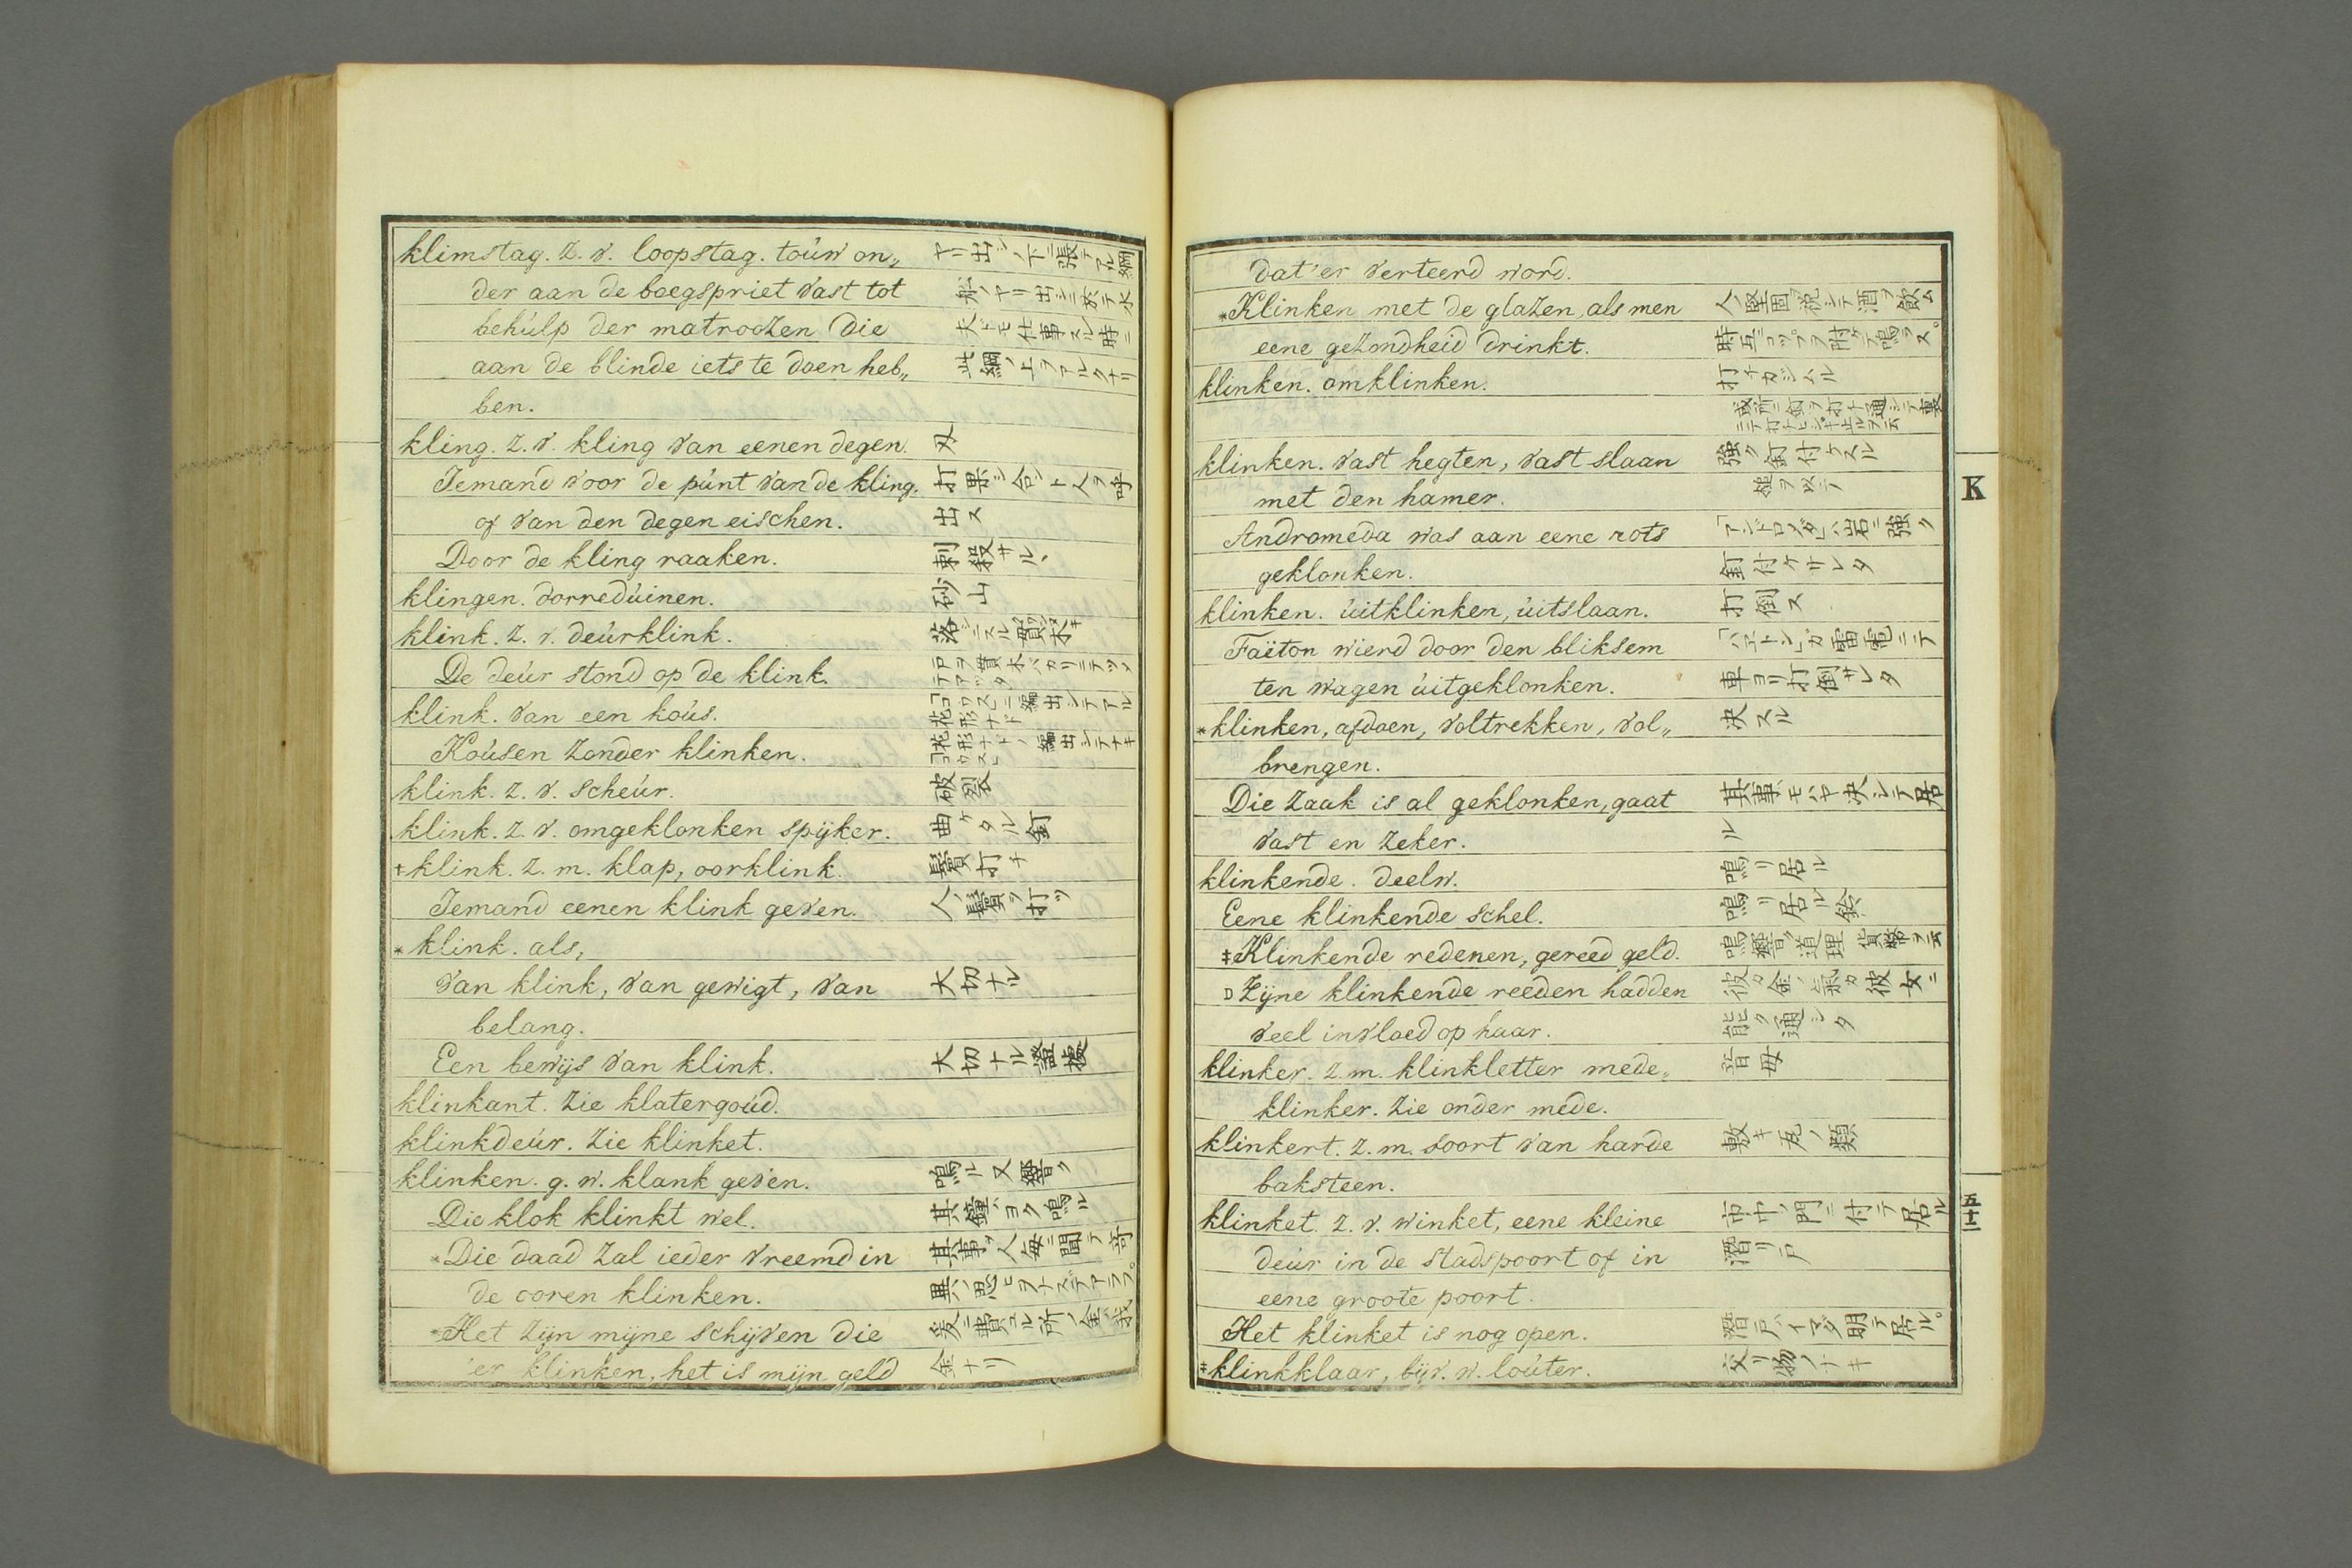 klimstag. z. v. loopstag. toúw on„ ヤリ出シノ下ニ張テアル綱
der aan de boegspriet vast tot 船ノヤリ出シニ於テ水
behúlp der matroozen die 夫ドモ仕事スル時ニ
aan de blinde iets te doen heb„ 此綱ノ上ヲアルクナリ
ben.
kling. z. v. kling van eenen degen. 刄
Iemand voor de púnt van de kling. 打果シ合ント人ヲ呼
of van den degen eischen. 出ス
Door de kling raaken. 刺殺サル、
klingen. dorredúinen. 砂山
klink. z. v. deúrklink. 落シニスル貫木
De deúr stond op de klink. 戸ヲ貫木バカリニテツメテアツタ
klink. van een koús.
Koúsen zonder klinken.
klink. z. v. scheúr. 破裂
klink. z. v. omgeklonken spijker. 曲ケタル釘
‡klink. z. m. klap, oorklink. 鬢打チ
Iemand eenen klink geven. 人ノ鬢ヲ打ツ
*klink. als,
van klink, van gewigt, van 大切ナル
belang.
Een bewijs van klink. 大切ナル證據
klinkant. zie klatergoúd.
klinkdeúr. zie klinket.
klinken. g. w. klank geven. 鳴ル又響ク
Die klok klinkt wel. 其鐘ハヨク鳴ル
*Die daad zal ieder vreemd in 其事ハ人毎ニ聞テ奇
de ooren klinken. 異ノ思ヒヲナスデアラフ。
*Het zijn mijne schijven die 爰ニ費ユル所ノ金ハ我
'er klinken, het is mijn geld 金ナリ
dat'er verteerd word.
*Klinken met de glazen, als men 人ノ堅固ヲ祝シテ酒ヲ飲ム
eene gezondheid drinkt. 時互ニコップヲ附ケテ鳴ラス。
klinken. omklinken. 打チカジムル
klinken. vast hegten, vast slaan 強ク釘付ケスル
met den hamer. 槌ヲ以テ
Andromeda was aan eene rots 「アンドロメダ」ハ岩ニ強ク
geklonken. 釘付ケサレタ
klinken. úitklinken, úitslaan. 打倒ス
Faëton wierd door den bliksem 「ハエトン」ガ雷電ニテ
ten wagen úitgeklonken. 車ヨリ打倒サレタ
*klinken, afdoen, voltrekken, vol„ 决スル
brengen.
Die zaak is al geklonken, gaat 其事ハモハヤ决シテ居
vast en zeker. ル
klinkende. deelw. 鳴リ居ル
Eene klinkende schel. 鳴リ居ル鈴
‡Klinkende redenen, gereed geld. 鳴響ク道理 貨幣ヲ云
Zijne klinkende reeden hadden 彼カ金ノ氣カ彼女ニ
veel invloed op haar. 能ク通シタ
klinker. z. m. klinkletter mede„ 音母
klinker. zie onder mede.
klinkert. z. m. soort van harde 敷キ瓦ノ類
baksteen.
klinket. z. v. winket, eene kleine 市中ノ門ニ付テ居ル
deúr in de stadspoort of in 潜リ戸
eene groote poort.
Het klinket is nog open. 潜戸ハイマダ明テ居ル。
‡klinkklaar, bijv. w. loúter. 交リ物ノナキ
K
五十二